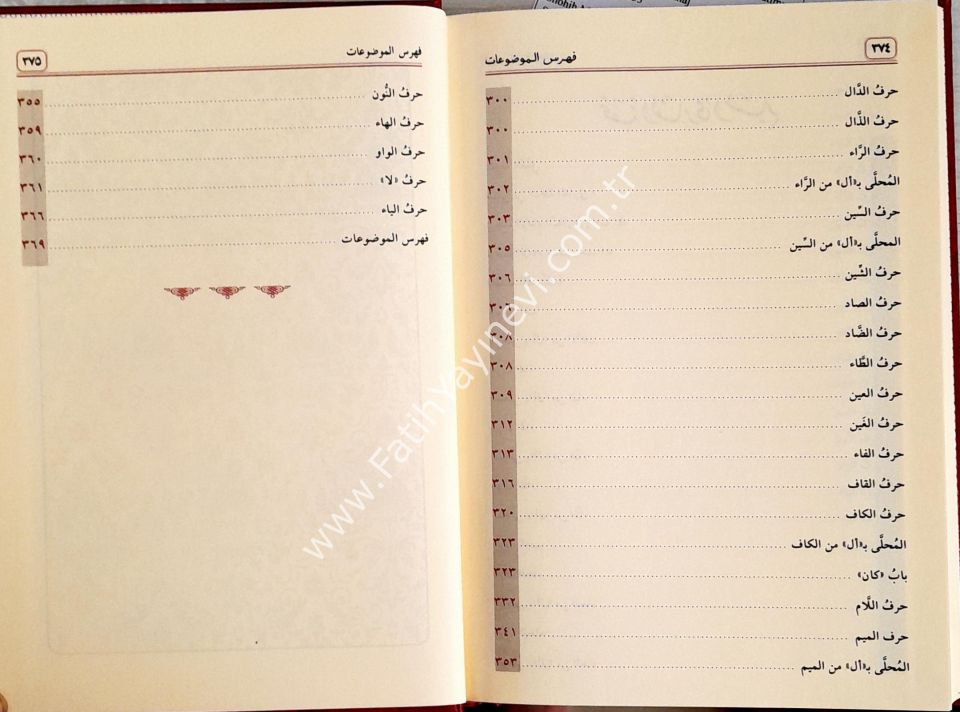 ٣٧٤
فهرس الموضوعات
حرفُ الدَّال ٣٠٠
حرفُ الذَّال ٣٠٠
حرفُ الرَّاء ٣٠١
المُحلَّى بـ«أل» من الرَّاء ٣٠٢
حرفُ السِّين ٣٠٣
المحلَّى بـ«أل» من السِّين ٣٠٥
حرفُ الشِّين ٣٠٦
حرفُ الصاد
حرفُ الضَّاد ٣٠٨
حرفُ الطَّاء ٣٠٨
حرفُ العين ٣٠٩
حرفُ الغَين ٣١٢
حرفُ الفاء ٣١٣
حرفُ القاف ٣١٦
حرفُ الكاف ٣٢٠
المُحلَّى بـ«أل» من الكاف ٣٢٣
بابُ «كان» ٣٢٣
حرفُ اللَّام ٣٣٢
حرف الميم ٣٤١
المُحلَّى بـ«أل» من الميم ٣٥٣
فهرس الموضوعات
٣٧٥
حرفُ النُّون ٣٥٥
حرفُ الهاء ٣٥٩
حرفُ الواو ٣٦٠
حرفُ «لا» ٣٦١
حرفُ الياء ٣٦٦
فهرس الموضوعات ٣٦٩
www.Fatihyayinevi.com.tr